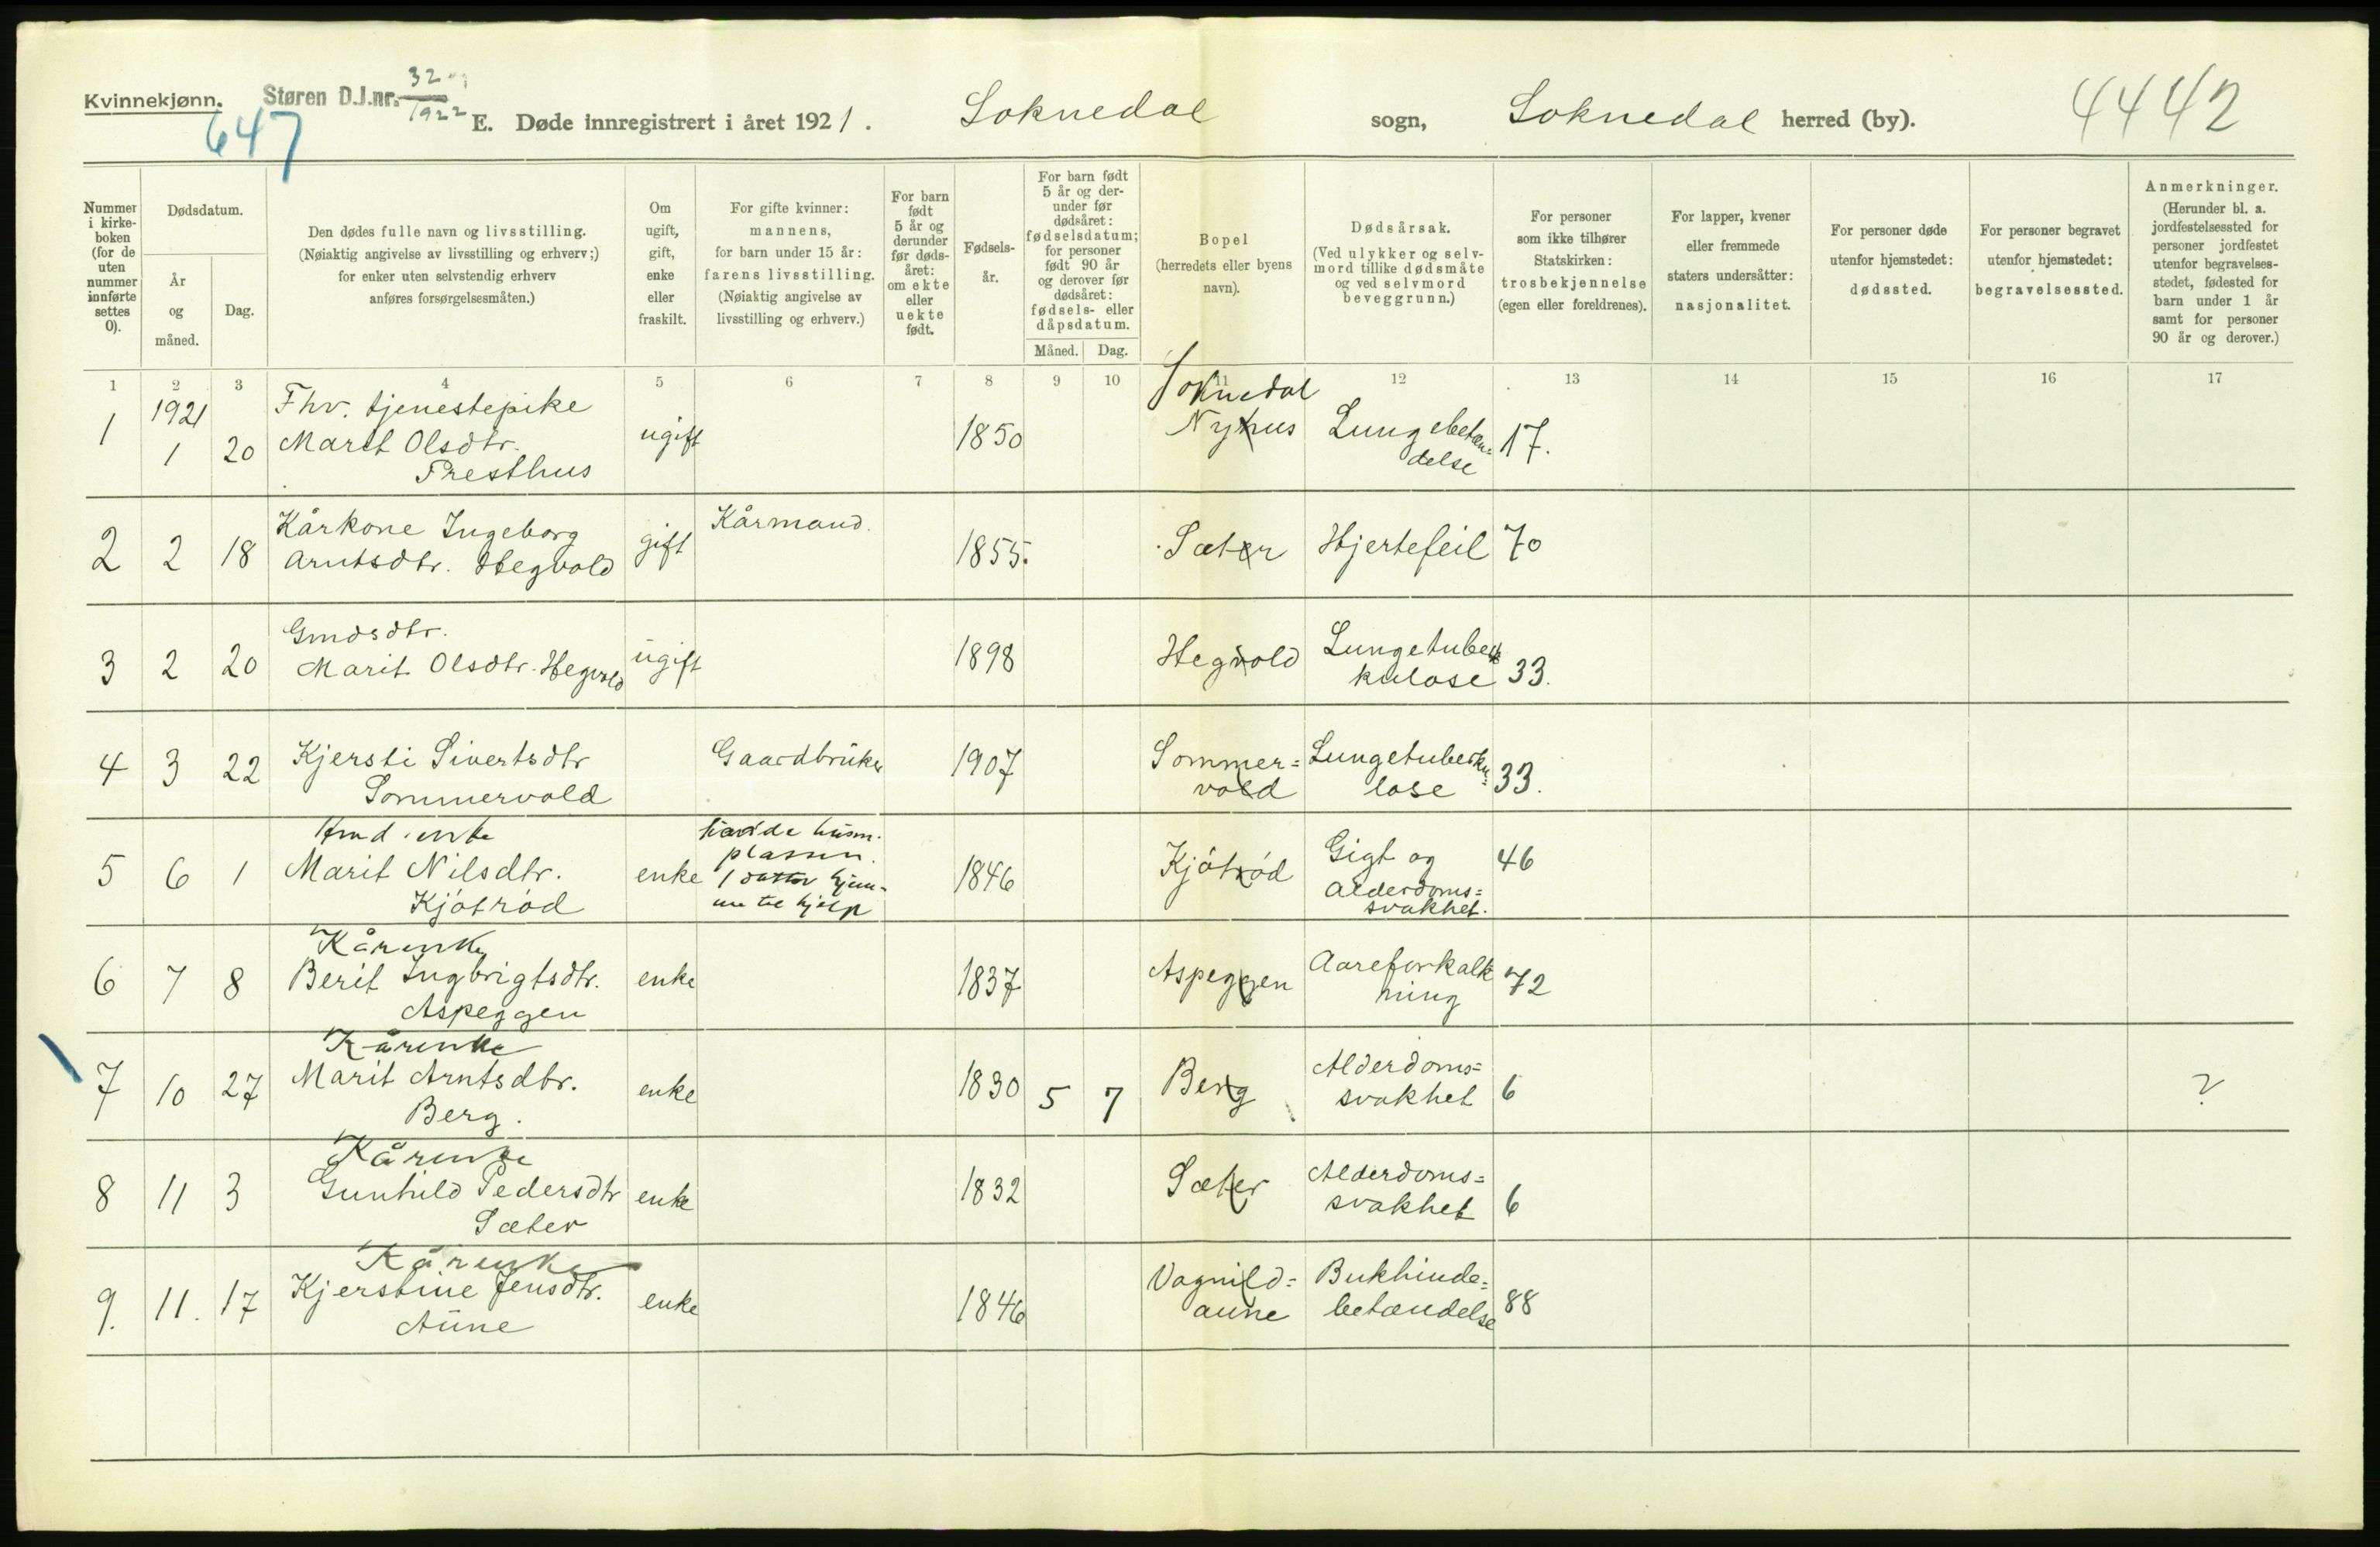 Kvinnekjønn.
Støren D.J.nr. 32
1922
647
E. Døde innregistrert i året 1921.
Soknedal sogn, Soknedal herred (by).
4442
Nummer
i kirke-
boken
(for de
uten
nummer
innførte
settes
0).
Dødsdatum.
År
og
måned.
Dag.
Den dødes fulle navn og livsstilling.
(Nøiaktig angivelse av livsstilling og erhverv;)
for enker uten selvstendig erhverv
anføres forsørgelsesmåten.)
Om
ugift,
gift,
enke
eller
fraskilt.
For gifte kvinner:
mannens,
for barn under 15 år:
farens livsstilling.
(Nøiaktig angivelse av
livsstilling og erhverv.)
For barn
født
5 år og
derunder
før døds-
året:
om ekte
eller
uekte
født.
Fødsels-
år.
For barn født
5 år og der-
under før
dødsåret:
fødselsdatum;
for personer
født 90 år
og derover før
dødsåret:
fødsels- eller
dåpsdatum.
Måned.
Dag.
Bopel
(herredets eller byens
navn).
Dødsårsak.
(Ved ulykker og selv-
mord tillike dødsmåte
og ved selvmord
beveggrunn.)
For personer
som ikke tilhører
Statskirken:
trosbekjennelse
(egen eller foreldrenes).
For lapper, kvener
eller fremmede
staters undersåtter:
nasjonalitet.
For personer døde
utenfor hjemstedet:
dødssted.
For personer begravet
utenfor hjemstedet:
begravelsessted.
Anmerkninger.
(Herunder bl. a.
jordfestelsessted for
personer jordfestet
utenfor begravelses-
stedet, fødested for
barn under 1 år
samt for personer
90 år og derover.)
1 2 3 4 5 6 7 8 9 10 11 12 13 14 15 16 17
1921
Soknedal
1 1 20 Fhv. tjenestepike
Marit Olsdtr.
Presthus
ugift 1850 Nyhus Lungebetæn-
delse
17.
2 2 18 Kårkone Ingeborg
Arntsdtr. Hegvold
gift Kårmand. 1855. Sæter Hjertefeil 70
3 2 20 Gmdsdtr.
Marit Olsdtr. Hegvold
ugift 1898 Hegvold Lungetuber
kulose 33.
4 3 22 Kjersti Sivertsdtr
Sommervold
Gaardbruker 1907 Sommer=
vold
Lungetuberku=
lose 33.
5 6 1 Hmd. enke
Marit Nilsdtr.
Kjøtrød
enke havde husm.
plassen.
1 datter hjem-
me til hjelp
1846 Kjøtrød Gigt og
Alderdoms=
svakhet.
46
6 7 8 Kårenke
Berit Ingbrigtsdtr.
Aspeggen
enke 1837 Aspeggen Aareforkalk
ning 72
7 10 27 Kårenke
Marit Arntsdtr.
Berg.
enke 1830 5 7 Berg Alderdoms=
svakhet 6 ?
8 11 3 Kårenke
Gunhild Pedersdtr
Sæter
enke 1832 Sæter Alderdoms=
svakhet 6
9. 11. 17 Kårenke
Kjerstine Jensdtr.
Aune
enke 1846 Vagnild=
aune
Bukhinde=
betændelse 88